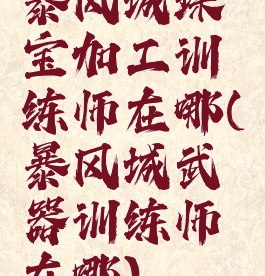 暴风城珠
宝加工训
练师在哪(
暴风城武
器训练师
在哪)